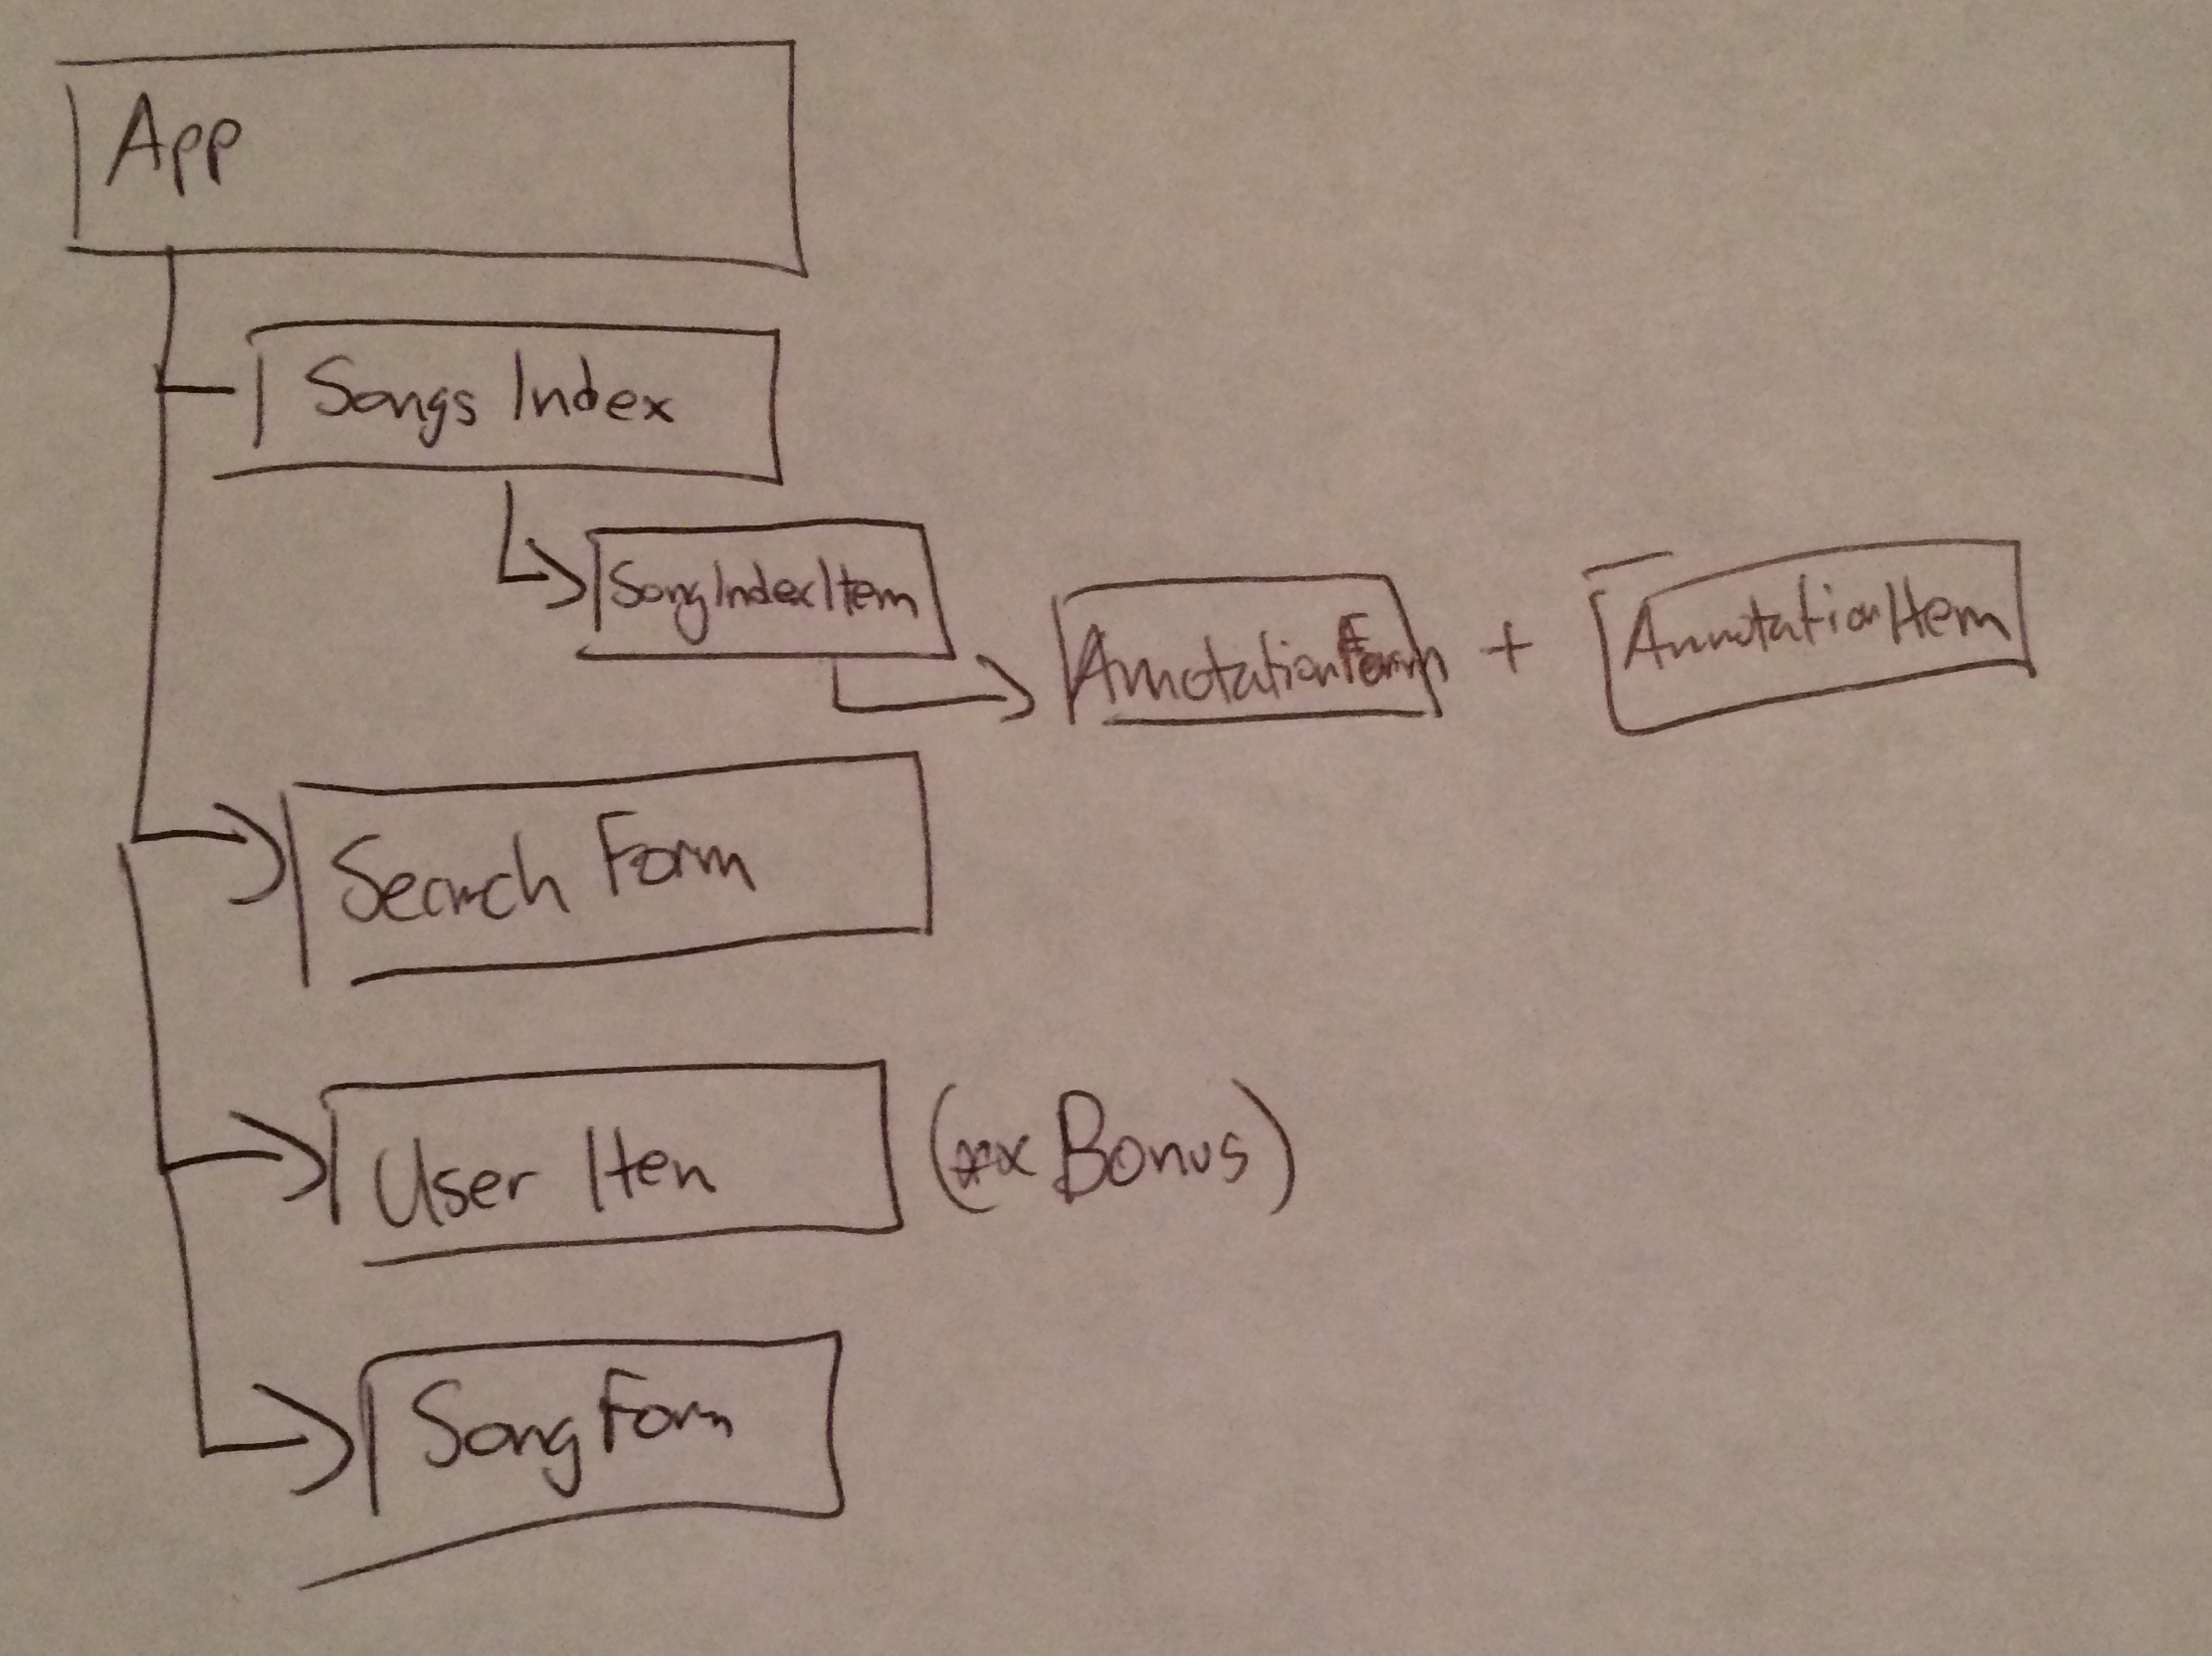 App
Songs Index
SongIndexItem
AnnotationForm + AnnotationItem
Search Form
User Iten (**Bonus)
SongForm